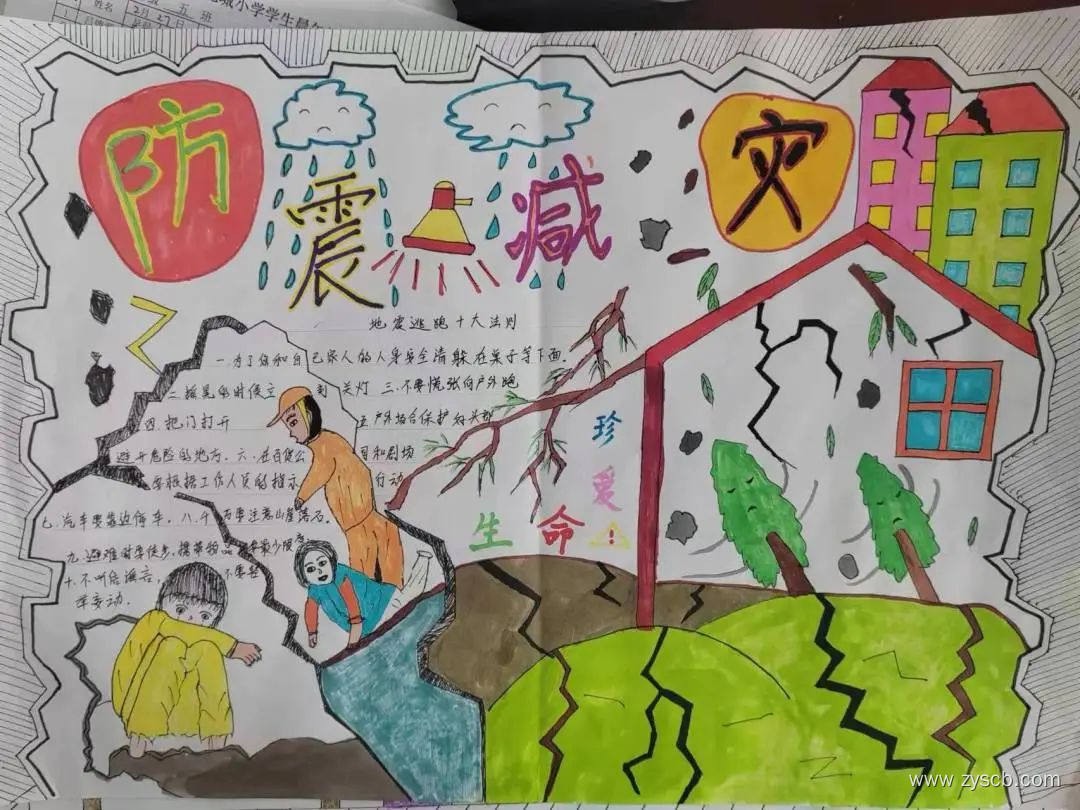 姓名 五 班
小学学生
2月27日
防 震 减 灾
地震逃跑十大法则
一.为了您和自己家人的人身安全请躲在桌子等下面。
二.摇晃的时候立 刻 关灯 三.不要慌张向户外跑
四.把门打开 五.户外场合保护好头部
避开危险的地方。六.在百货公 司和剧场
要根据工作人员的指示 行动
七.汽车要靠边停车。八. 要注意山崖落石。
九.避难时要徒步,携带物品
十.不听信谣言, 不要轻
举妄动.
珍
爱
生 命 !
www.zyscb.com